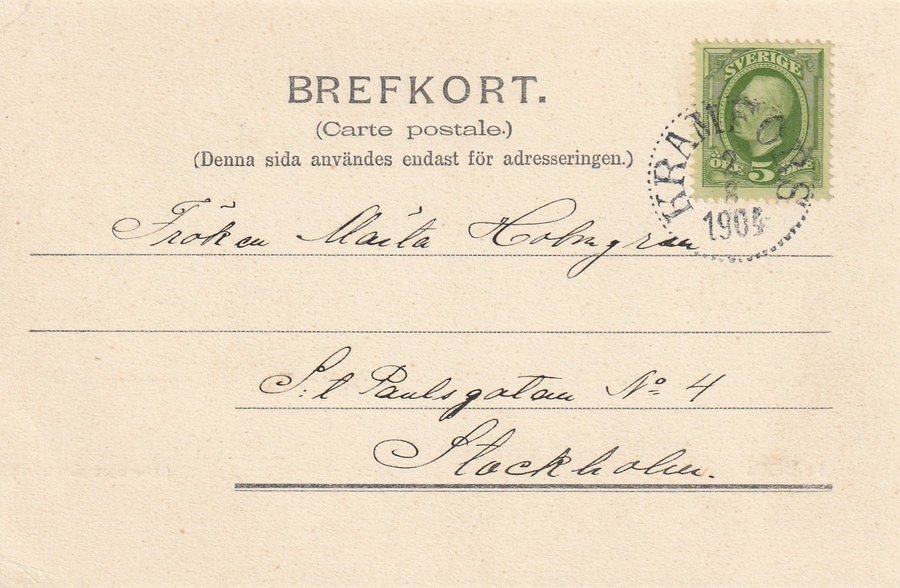 BREFKORT.
(Carte postale.)
(Denna sida användes endast för adresseringen.)
SVERIGE
ÖRE 5
KRAMFORS
8
1904
Fröken Maita Holmgren
S:t Paulsgatan No 4
Stockholm.